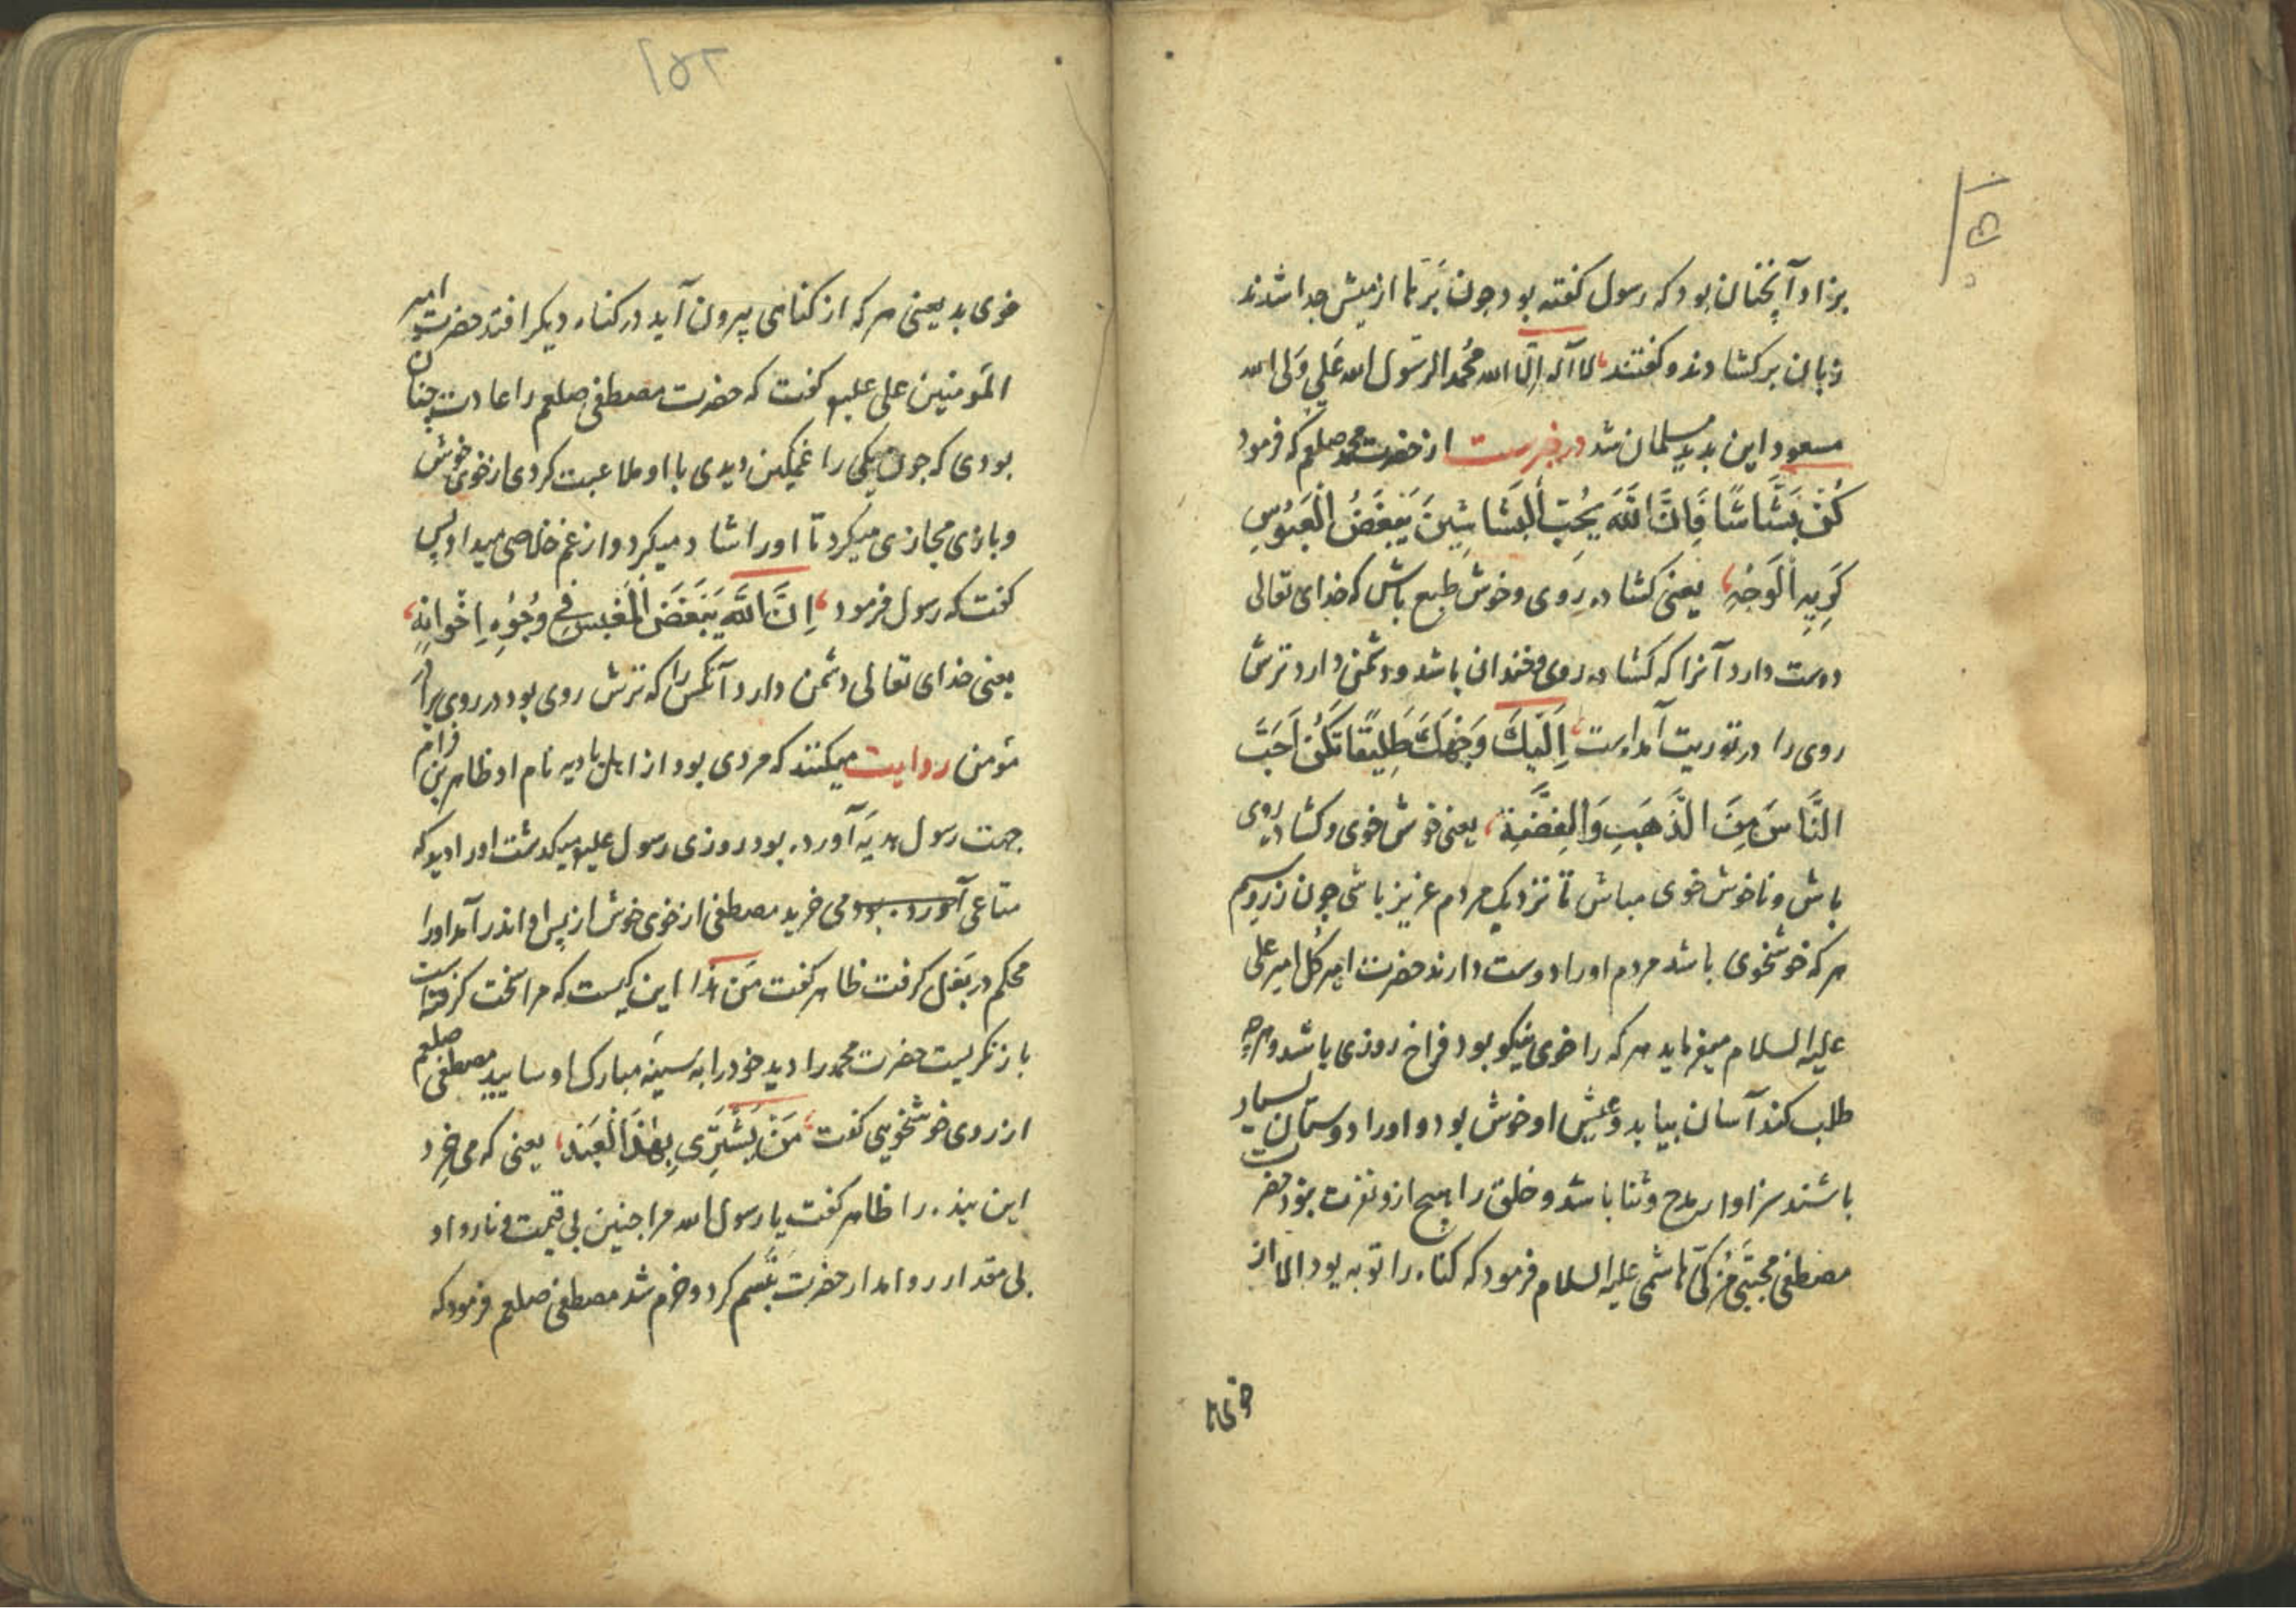 بزاد و آنچنان بود که رسول کفته بود چون بَرّها از میش جدا شدند
زبان برکشادند و کفتند لا اله الّا الله محُمد الرسّول الله عَلیِ وَلی الله
مسعود این بدید مسلمان شد در خبرست از حضرت محمد صلعم که فرمود
کُنْ بَشَّاشًا فَاِنَّ اللَّهَ یُحِبّ الْبَشَاشِینَ یَبْغَضُ الْعَبُوسِ
کَرِیهِ الْوَجْهِ یعنی کشاده رِوی و خوش طبع باش که خدای تعالی
دوست دارد آنرا که کشاده روی و خندان باشد و دشمن دارد ترش
روی را در توریت آمد است اِلَیْكَ وَجْهَكَ طَلِیقًا تَکُنْ اَحَبَّ
النَّاسَ مِنَ الذَّهَبِ وَالْفِضَّةِ یعنی خوش خوی و کشاده روی
باش و ناخوش خوی مباش تا نزدیک مردم عزیز باشی چون زر و سیم
هر که خوشخوی باشد مردم او را دوست دارند حضرت امیر کُل امیر علی
علیه السلام میفرماید هر که را خوی نیکو بود فراخ روزی باشد و هرچه
طلب کند آسان بیابد و عیش او خوش بود و او را دوستان بسیار
باشند سزاوار مدح و ثنا باشد و خلق را هیچ ازو نفرت نبود حضرت
مصطفی مجتبَی مُزکّی هاشمی علیه السلام فرمود که کناه را توبه بود الا از
خوی
۱۵۲
خوی بد یعنی هر که از کناهی بیرون آید در کناه دیکر افتد حضرت امیر
المَومنین علی علیه کفت که حضرت مصطفی صلعم را عادت چنان
بودی که چون یکی را غمکین دیدی با او ملاعبت کردی از خوی خوش
و بازی مجازی میکرد تا او را شاد میکرد و از غم خلاصی میداد پس
کفت که رسول فرمود اِنَّ اللَّهَ یَبْغَضَ الْمُعَبِسَ فِی وُجُوْهِ اِخْوَانِهِ
یعنی خدای تعالی دشمن دارد آنکس را که ترش روی بود در روی برادر
مؤمن روایت میکنند که مردی بود از اهل بادیه نام او ظاهر بن خرام
جهت رسول هدیَه آورده بود روزی رسول علیه میکذشت او را دید که
متاعی آورده بود می خرید مصطفی از خوی خوش از پس او اندر آمد او را
محکم در بَغل کرفت ظاهر کفت مَن هذا این کیست که مرا سخت کرفته است
باز نکریست حضرت محمد را دید خود را به سَینه مبارک او سایید مصطفی صلعم
از روی خوشخویی کفت مَنْ یَشْتَرِی بِهَذَا الْعَبْدَ یعنی که می خرد
این بنده را ظاهر کفت یا رسول الله مرا چنین بی قیمت و ناروا و
بی مقدار روا مدار حضرت تبَسم کرد و خرم شد مصطفی صلعم فرمود که